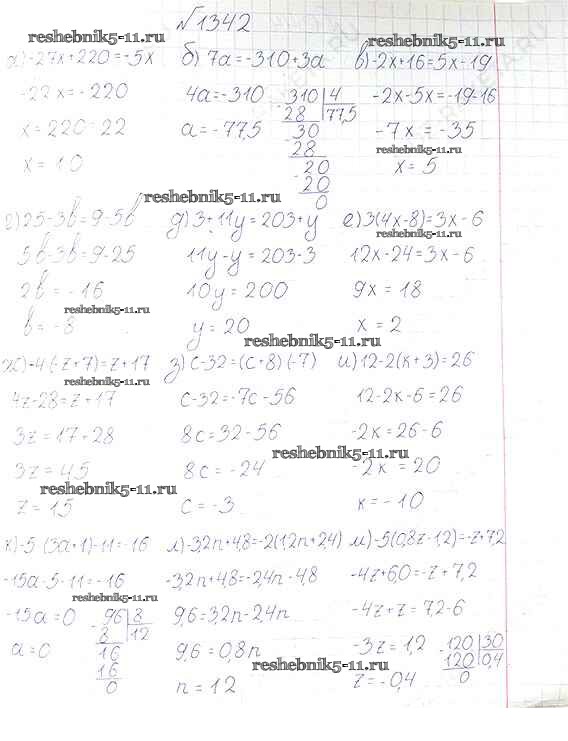 №1342
а) -27x+220=-5x
-22x=-220
x=220:22
x=10
б) 7a=-310+3a
4a=-310
a=-77,5
310 | 4
28 | 77,5
30
28
20
20
0
reshebnik5-11.ru
в) -2x+16=5x-19
-2x-5x=-19-16
-7x=-35
reshebnik5-11.ru
x=5
reshebnik5-11.ru
г) 25-3b=9-5b
5b-3b=9-25
2b=-16
reshebnik5-11.ru
b=-8
д) 3+11y=203+y
11y-y=203-3
10y=200
y=20
е) 3(4x-8)=3x-6
reshebnik5-11.ru
12x-24=3x-6
9x=18
x=2
reshebnik5-11.ru
ж) -4(-z+7)=z+17
reshebnik5-11.ru
4z-28=z+17
3z=17+28
3z=45
reshebnik5-11.ru
z=15
з) c-32=(c+8)(-7)
c-32=-7c-56
8c=32-56
8c=-24
c=-3
и) 12-2(k+3)=26
12-2k-6=26
-2k=26-6
reshebnik5-11.ru
-2k=20
k=-10
к) -5(3a+1)-11=-16
-15a-5-11=-16
reshebnik5-11.ru
-15a=0
a=0
96 | 8
8 | 12
16
16
0
л) -3,2n+4,8=-2(1,2n+2,4)
-3,2n+4,8=-2,4n-4,8
9,6=3,2n-2,4n
9,6=0,8n
n=12
reshebnik5-11.ru
м) -5(0,8z-1,2)=-z+7,2
-4z+6,0=-z+7,2
-4z+z=7,2-6
-3z=1,2
z=-0,4
120 | 30
120 | 0,4
0